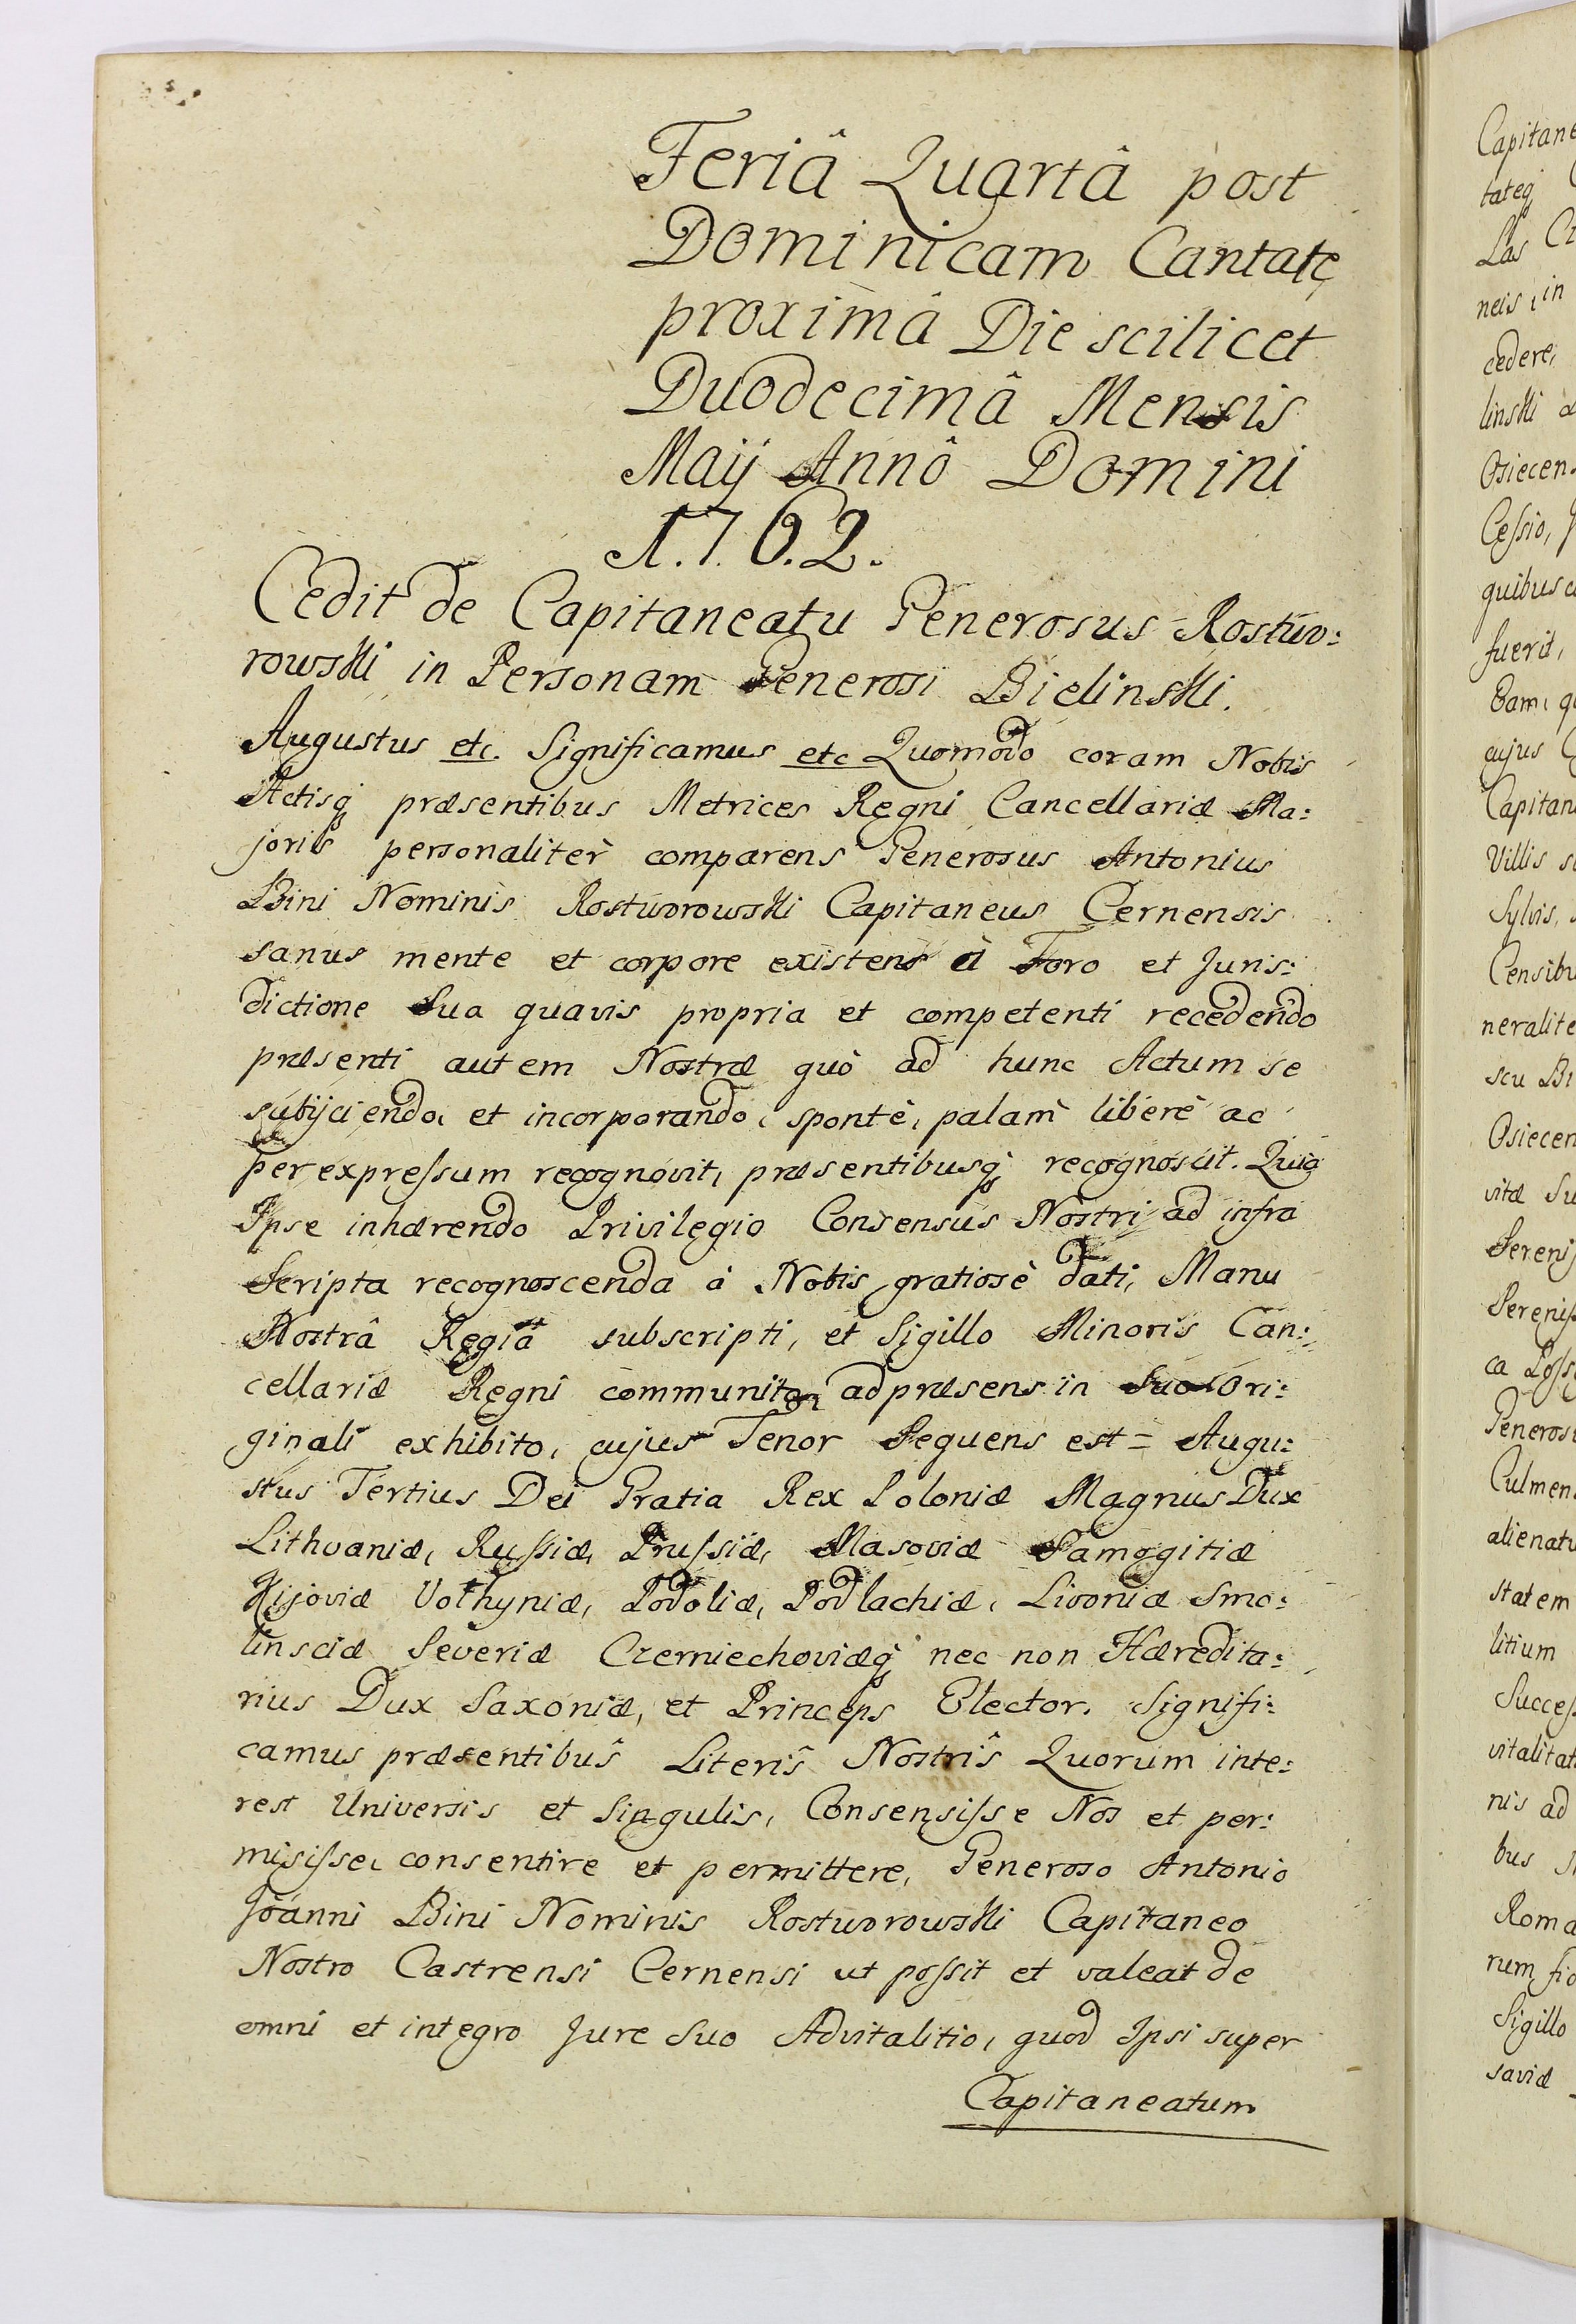 Feriâ Quartâ post
Dominicam Cantate
proximâ Die scilicet
Duodecimâ Mensis
Maij Annô Domini
1.7.6.2.
Cedit de Capitaneatu Generosus Rostwo:
rowski in Personam Generosi Bielinski.
Augustus etc. Significamus etc Quomodo coram Nobis
Actisq præsentibus Metrices Regni Cancellariæ Ma:
joris personalitèr comparens Generosus Antonius
Bini Nominis Rostworowski Capitaneus Cernensis
sanus mente et corpore existens à Foro et Juris:
dictione Sua quavis propria et competenti recedendo
præsenti autem Nostræ quò ad hunc Actum se
subijciendo, et incorporando, spontè, palam liberè ac
per expreſsum recognovit, præsentibusq recognoscit. Quia
Ipse inhærendo Privilegio Consensûs Nostri ad infra
Scripta recognoscenda à Nobis gratiosè dati, Manu
Nostrâ Regiâ subscripti, et Sigillo Minoris Can:
cellariæ Regni communito, ad præsens in Suo Ori:
ginali exhibito, cujus Tenor Sequens est = Augu:
stus Tertius Dei Gratia Rex Poloniæ Magnus Dux
Lithvaniæ, Ruſsiæ, Pruſsiæ, Masoviæ Samogitiæ
Kijoviæ Volhyniæ, Podoliæ, Podlachiæ, Livoniæ Smo:
linsciæ Severiæ Czerniechoviæq nec non Hæredita:
rius Dux Saxoniæ, et Princeps Elector. Signifi:
camus præsentibus Literis Nostris Quorum inte:
rest Universis et Singulis, Consensiſse Nos et per:
misiſse, consentire et permittere, Generoso Antonio
Joanni Bini Nominis Rostworowski Capitaneo
Nostro Castrensi Cernensi ut poſsit et valeat de
omni et integro Jure Suo Advitalitio, quod Ipsi super
Capitaneatum
Capitane
tateq
Las
neis, in
cedere,
linski
Osiecen
Ceſsio,
quibus
fuerit,
Eam,
cujus
Capitan
Villis
Sylvis,
Censibu
neralite
seu Bi
Osiecen
vitæ Su
Sereniſ
Sereniſs
ca Poſs
Generos
Culmen
alienatu
statem
litium
Succeſ
vitalitat
nis ad
bus
Roma
rum fi
Sigillo
saviæ